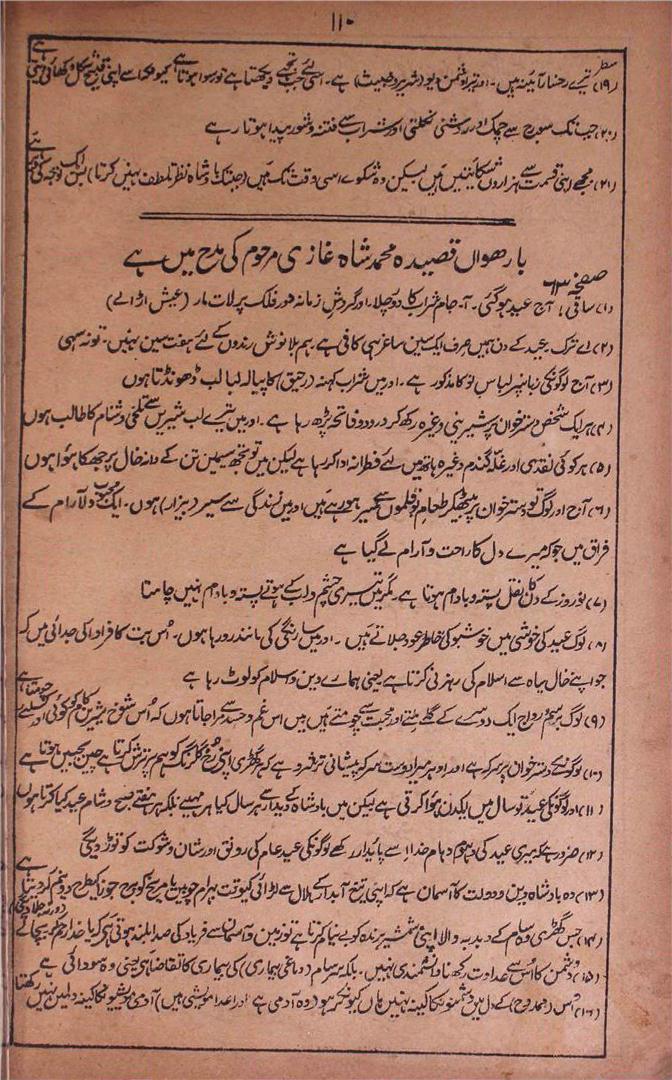 ۱۱۰
سطر
(۱۹) تیرے رخسار آئینہ میں۔ اور تیرا دشمن دیو (شریر و خبیث) ہے۔ اسی لئے جب تجھے دیکھتا ہے تو رسوا ہوتا ہے کیونکہ اسے اپنی قبیح شکل دکھائی دیتی ہے
(۲۰) جب تک سورج سے چمک اور روشنی نکلتی اور شراب سے فتنہ و شور پیدا ہوتا رہے
(۲۱) مجھے اپنی قسمت سے ہزاروں شکایتیں ہیں لیکن وہ شکوے اسی وقت تک ہیں (جبتک بادشاہ نظر تلطف نہیں کرتا) بس ایک توجہ کی
بارھواں قصیدہ محمد شاہ غازی مرحوم کی مدح میں ہے
صفحہ ۶۳
(۱) ساقی! آج عید ہو گئی۔ آ۔ جام شراب کا دَو چلا۔ اور گردش زمانہ دور فلک پر لات مار (عیش اڑا لے)
(۲) اے ترک عید کے دن ہیں صرف ایک سین ساغر ہی کافی ہے۔ ہم بلا نوش رندوں کے لئے ہفت سین نہیں۔ تو نہ سہی
(۳) آج لوگونکی زبانپر لباس نو کا مذکور ہے۔ اور میں شراب کہنہ (رحیق) کا پیالہ لبالب ڈھونڈتا ہوں
(۴) ہر ایک شخص دسترخوان پر شیرینی وغیرہ رکھ کر درود و فاتحہ پڑھ رہا ہے۔ اور میں تیرے لب شیریں سے تلخی دشنام کا طالب ہوں
(۵) ہر کوئی نقدی اور غلہ گندم وغیرہ ہاتھ میں لئے فطرانہ ادا کر رہا ہے لیکن میں تو تجھ سیمیں تن کے دانہ خال پر جھکا ہوا ہوں
(۶) آج اور لوگ تو دسترخوان پر بیٹھکر طعام کے نوالوں سے سیر ہو رہے ہیں اور میں زندگی سے سیر (بیزار) ہوں۔ ایک محبوب دلآرام کے
فراق میں جو کہ میرے دل کا راحت و آرام لے گیا ہے
(۷) نوروز کے دن کا نقل پستہ و بادام ہوتا ہے۔ مگر میں تیری چشم و لب کے ہوتے پستہ و بادام نہیں چاہتا
(۸) لوگ عید کی خوشی میں خوشبو کی خاطر عود جلاتے ہیں۔ اور میں سارنگی کی مانند رو رہا ہوں۔ اُس بت کافر ادا کی جدائی میں کہ
جو اپنے خال سیاہ سے اسلام کی رہزنی کرتا ہے یعنی ہمارے دین و اسلام کو لوٹ رہا ہے
(۹) لوگ برسم رواج ایک دوسرے کے گلے ملتے اور محبت سے چومتے ہیں میں اس غم و حسد سے مرا جاتا ہوں کہ اُس شوخ شیریں کام کو کوئی اور گلے سے
(۱۰) لوگونکے دسترخوان پر سرکہ ہے اور ادھر میرا دوست سرکہ پیشانی ترشرو ہے کہ ہر گھڑی اپنی رخ گلرنگ کو ہم پر ترش کرتا ہے چین بجبیں ہوتا ہے
(۱۱) اور لوگونکی عید تو سال میں ایکدن ہوا کرتی ہے لیکن میں بادشاہ کے دیدار سے ہر سال کیا ہر مہینے بلکہ ہر ہفتے صبح و شام عید کیا کرتا ہوں
(۱۲) ضرور ہے کہ میری عید کی دھوم دھام خدا اسے پائدار رکھے لوگونکی عید عام کی رونق اور شان و شوکت کو توڑ دیگی
(۱۳) وہ بادشاہ دین و دولت کا آسمان ہے کہ اپنی تیغ آبدار کے ہلال سے لڑائی کیوقت بہرام چوبین یا مریخ کو برج جوزا کیطرح دو نیم کر دیتا ہے
(۱۴) جس گھڑی وہ سام کے دبدبہ والا اپنی شمشیر برندہ کو بے نیام کرتا ہے تو زمین و آسمان سے فریاد کی صدا بلند ہوتی ہے کہ یا خدا رحم کر بچائے
(۱۵) دشمن کا اُس سے عداوت رکھنا دانشمندی نہیں۔ بلکہ سرسام (دماغی بیماری) کی بیماری کا تقاضا ہے یعنی وہ سودائی ہے
(۱۶) اُس (ممدوح) کے دل میں دشمنوں کا کینہ نہیں ہاں کیونکر ہو (وہ آدمی ہے اور اعدا مویشی ہیں) آدمی مویشیوں کا کینہ دل میں نہیں رکھتا